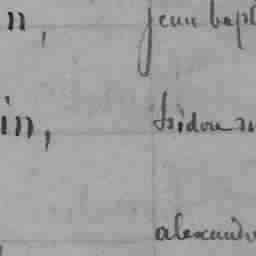 n, jean bapt
in, isidore
alexandr